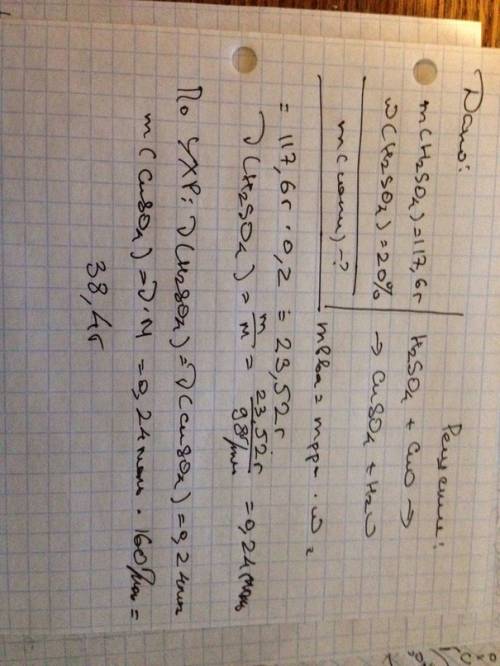 Дано:
m(H₂SO₄)=117,6г
ω(H₂SO₄)=20%
m(соли)-?
Решение:
H₂SO₄ + CuO →
→ CuSO₄ + H₂O
mв-ва = mр-ра · ω =
= 117,6г · 0,2 = 23,52г
ν(H₂SO₄) = m/M = 23,52г/98г/моль = 0,24моль
По УХР: ν(H₂SO₄)=ν(CuSO₄)=0,24моль
m(CuSO₄)=ν·M =0,24моль · 160г/моль =
38,4г